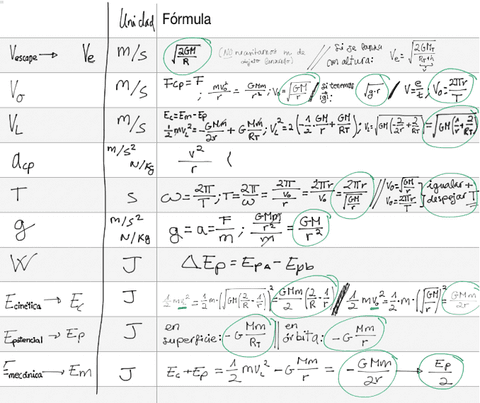 Unidad Fórmula
Vescape → Ve m/s √(2GM/R) (NO necesitamos m de objeto lanzado) // Si se lanza con altura: Ve = √(2GM/(RT+h))
Vo m/s Fcp = F; mVo²/r = GMm/r²; Vo = √(GM/r) // si tenemos |g|: √(g·r) // V = e/t; Vo = 2πr/T
VL m/s Ec = Em - Ep
½mVL² = -GMm/2r + GMm/RT; VL² = 2(-½·GM/r + GM/RT); VL = √(GM(-2/2r + 2/RT)) = √(GM(-1/r + 2/RT))
acp m/s² N/kg v²/r
T s ω = 2π/T; T = 2π/ω = 2π/(Vo/r) = 2πr/Vo = 2πr/√(GM/r) // Vo = √(GM/r) Vo = 2πr/T } igualar + despejar T
g m/s² N/kg g = a = F/m; (GMm/r²)/m = GM/r²
W J ΔEp = EpA - Epb
Ecinética → Ec J
Epotencial → Ep J en superficie: -G Mm/RT || en órbita: -G Mm/r
Emecánica → Em J Ec + Ep = ½mVL² - G Mm/r = -GMm/2r → Ep/2